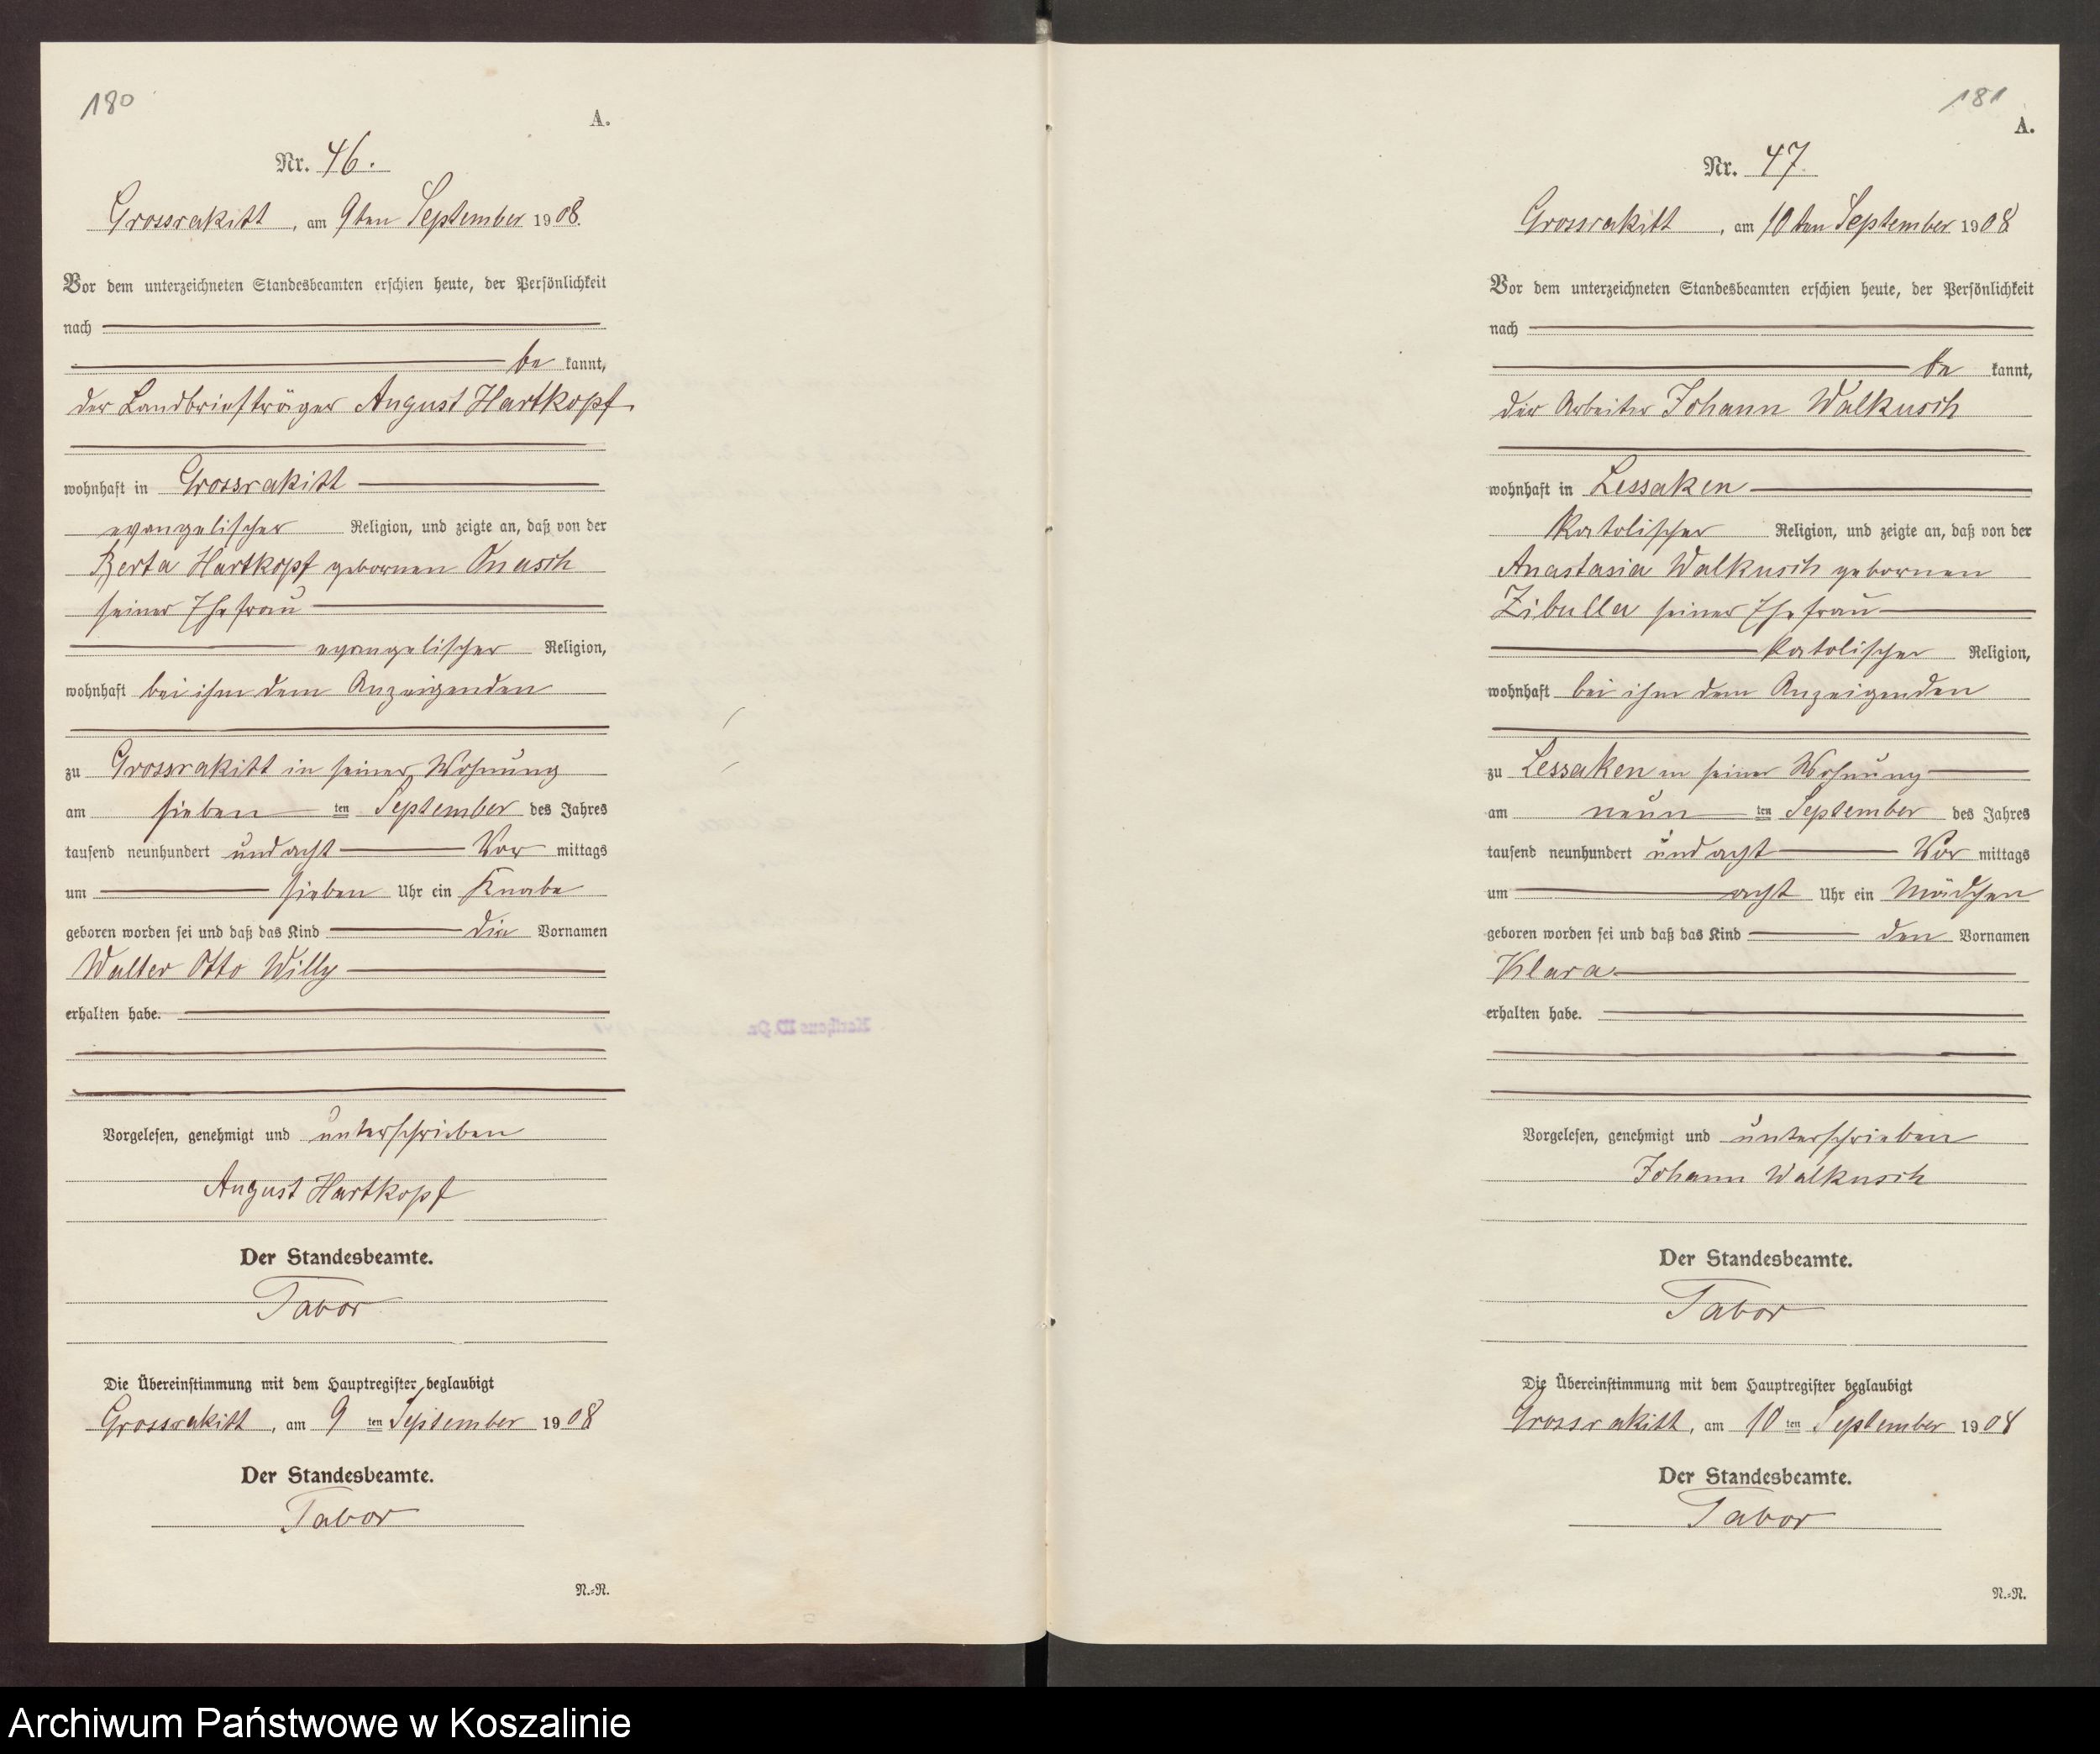 180
A.
Nr. 46.
Grossrakitt, am 9ten September 1908.
Vor dem unterzeichneten Standesbeamten erschien heute, der Persönlichkeit
nach
be kannt,
der Landbriefträger August Hartkopf
wohnhaft in Grossrakitt
evangelischer Religion, und zeigte an, daß von der
Berta Hartkopf gebornen Onasch
seiner Ehefrau
evangelischer Religion,
wohnhaft bei ihm dem Anzeigenden
zu Grossrakitt in seiner Wohnung
am sieben ten September des Jahres
tausend neunhundert und acht Vor mittags
um sieben Uhr ein Knabe
geboren worden sei und daß das Kind die Vornamen
Walter Otto Willy
erhalten habe.
Vorgelesen, genehmigt und unterschrieben
August Hartkopf
Der Standesbeamte.
Tabor
Die Übereinstimmung mit dem Hauptregister beglaubigt
Grossrakitt, am 9 ten September 1908
Der Standesbeamte.
Tabor
N.=N.
181
A.
Nr. 47.
Grossrakitt, am 10ten September 1908
Vor dem unterzeichneten Standesbeamten erschien heute, der Persönlichkeit
nach
be kannt,
der Arbeiter Johann Walkusch
wohnhaft in Lessaken
katolischer Religion, und zeigte an, daß von der
Anastasia Walkusch gebornen
Zibulla seiner Ehefrau
katolischer Religion,
wohnhaft bei ihm dem Anzeigenden
zu Lessaken in seiner Wohnung
am neun ten September des Jahres
tausend neunhundert und acht Vor mittags
um acht Uhr ein Mädchen
geboren worden sei und daß das Kind den Vornamen
Klara
erhalten habe.
Vorgelesen, genehmigt und unterschrieben
Johann Walkusch
Der Standesbeamte.
Tabor
Die Übereinstimmung mit dem Hauptregister beglaubigt
Grossrakitt, am 10 ten September 1908
Der Standesbeamte.
Tabor
N.=N.
Archiwum Państwowe w Koszalinie